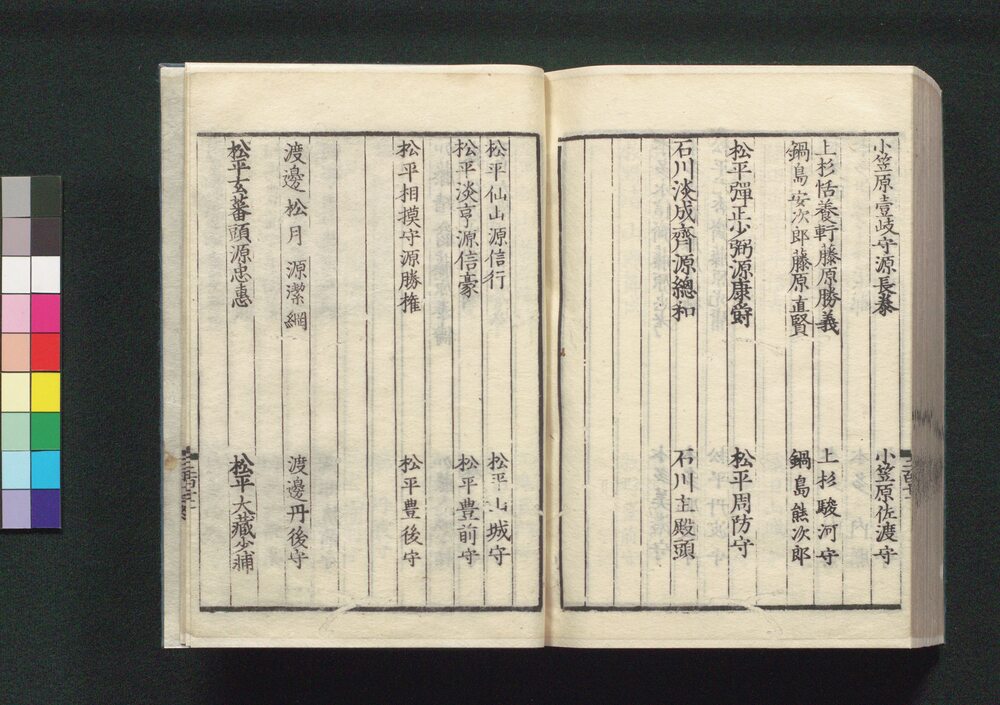 小笠原壹岐守源長泰 小笠原佐渡守
上杉恬養軒藤原勝義 上杉駿河守
鍋島安次郎藤原直賢 鍋島熊次郎
松平彈正少弼源康爵 松平周防守
石川淡成齊源總和 石川主殿頭
松平仙山源信行 松平山城守
松平淡亨源信豪 松平豊前守
松平相摸守源勝権 松平豊後守
渡邊松月源潔綱 渡邊丹後守
松平玄蕃頭源忠惠 松平大藏少輔